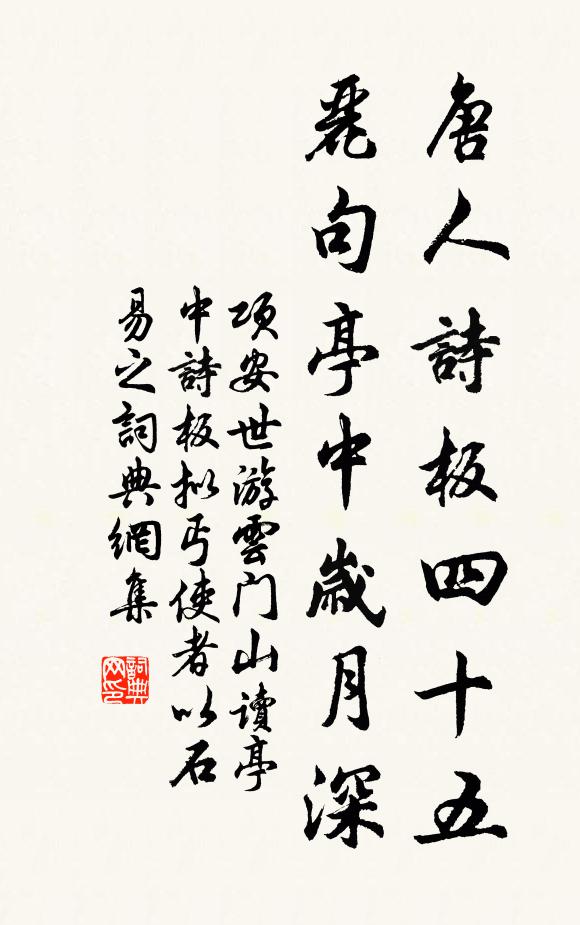 唐人詩板四十五
麗句亭中歲月深
項安世游雲门山讀亭
中詩板拟丐使者以石
易之詞典網集
詞典网印